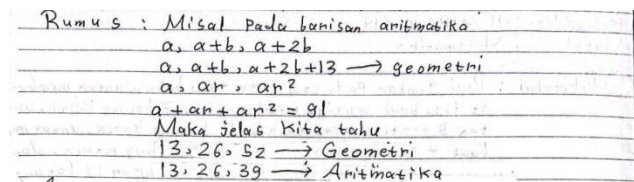 Rumus : Misal Pada barisan aritmatika
a, a+b, a+2b
a, a+b, a+2b+13 → geometri
a, ar, ar²
a+ar+ar² = 91
Maka jelas Kita tahu
13, 26, 52 → Geometri
13, 26, 39 → Aritmatika